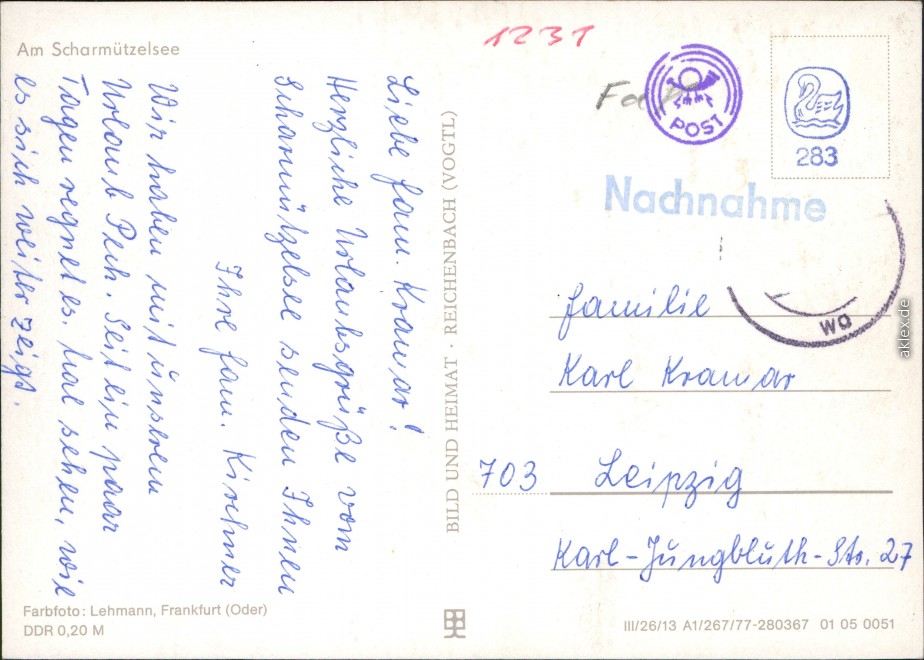 Am Scharmützelsee
Liebe Fam. Kramar!
Herzliche Urlaubsgrüße vom
Scharmützelsee senden Ihnen
Ihre Fam. Kirchner
Wir haben mit unseren
Urlaub Pech. Seit ein paar
Tagen regnet es. Mal sehen, wie
es sich weiter zeigt.
Farbfoto: Lehmann, Frankfurt (Oder)
DDR 0,20 M
BILD UND HEIMAT · REICHENBACH (VOGTL)
1231
POST
283
Nachnahme
wa
Familie
Karl Kramar
703 Leipzig
Karl-Jungbluth-Str. 27
III/26/13 A1/267/77-280367 01 05 0051
aklex.de